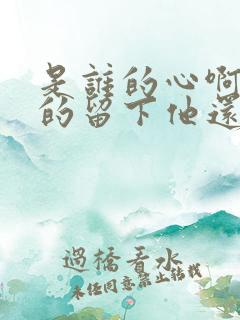 是誰的心啊
的留下他還
過橋看水
未经同意禁止转载